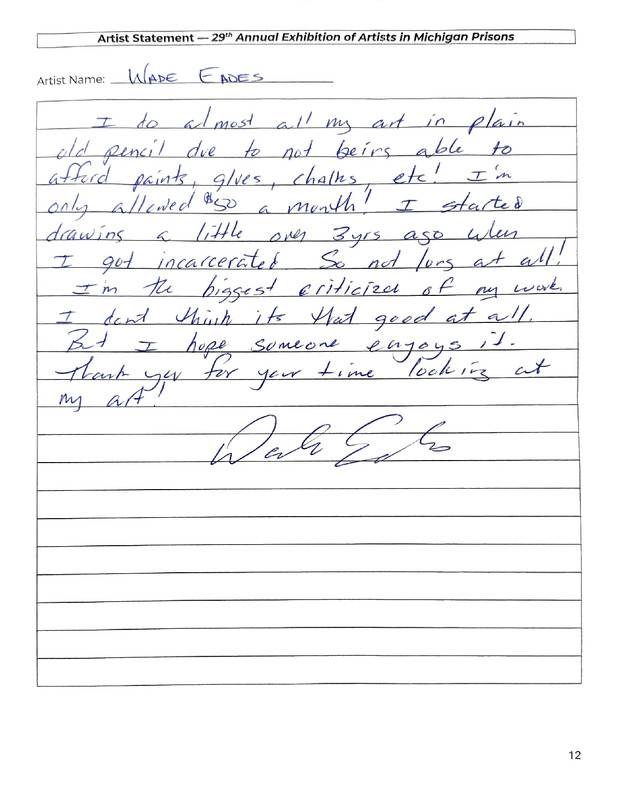 Artist Statement — 29th Annual Exhibition of Artists in Michigan Prisons
Artist Name: WADE EADES
I do almost all my art in plain
old pencil due to not beirs able to
afford paints, glves, chalks, etc! I'm
only allowed $50 a month! I started
drawing a little over 3yrs ago when
I got incarcerated So not long at all!
I'm the biggest criticizer of my work.
I dont think its that good at all.
But I hope someone enjoys it.
Thank you for your time looking at
my art!
Wade Eades
12